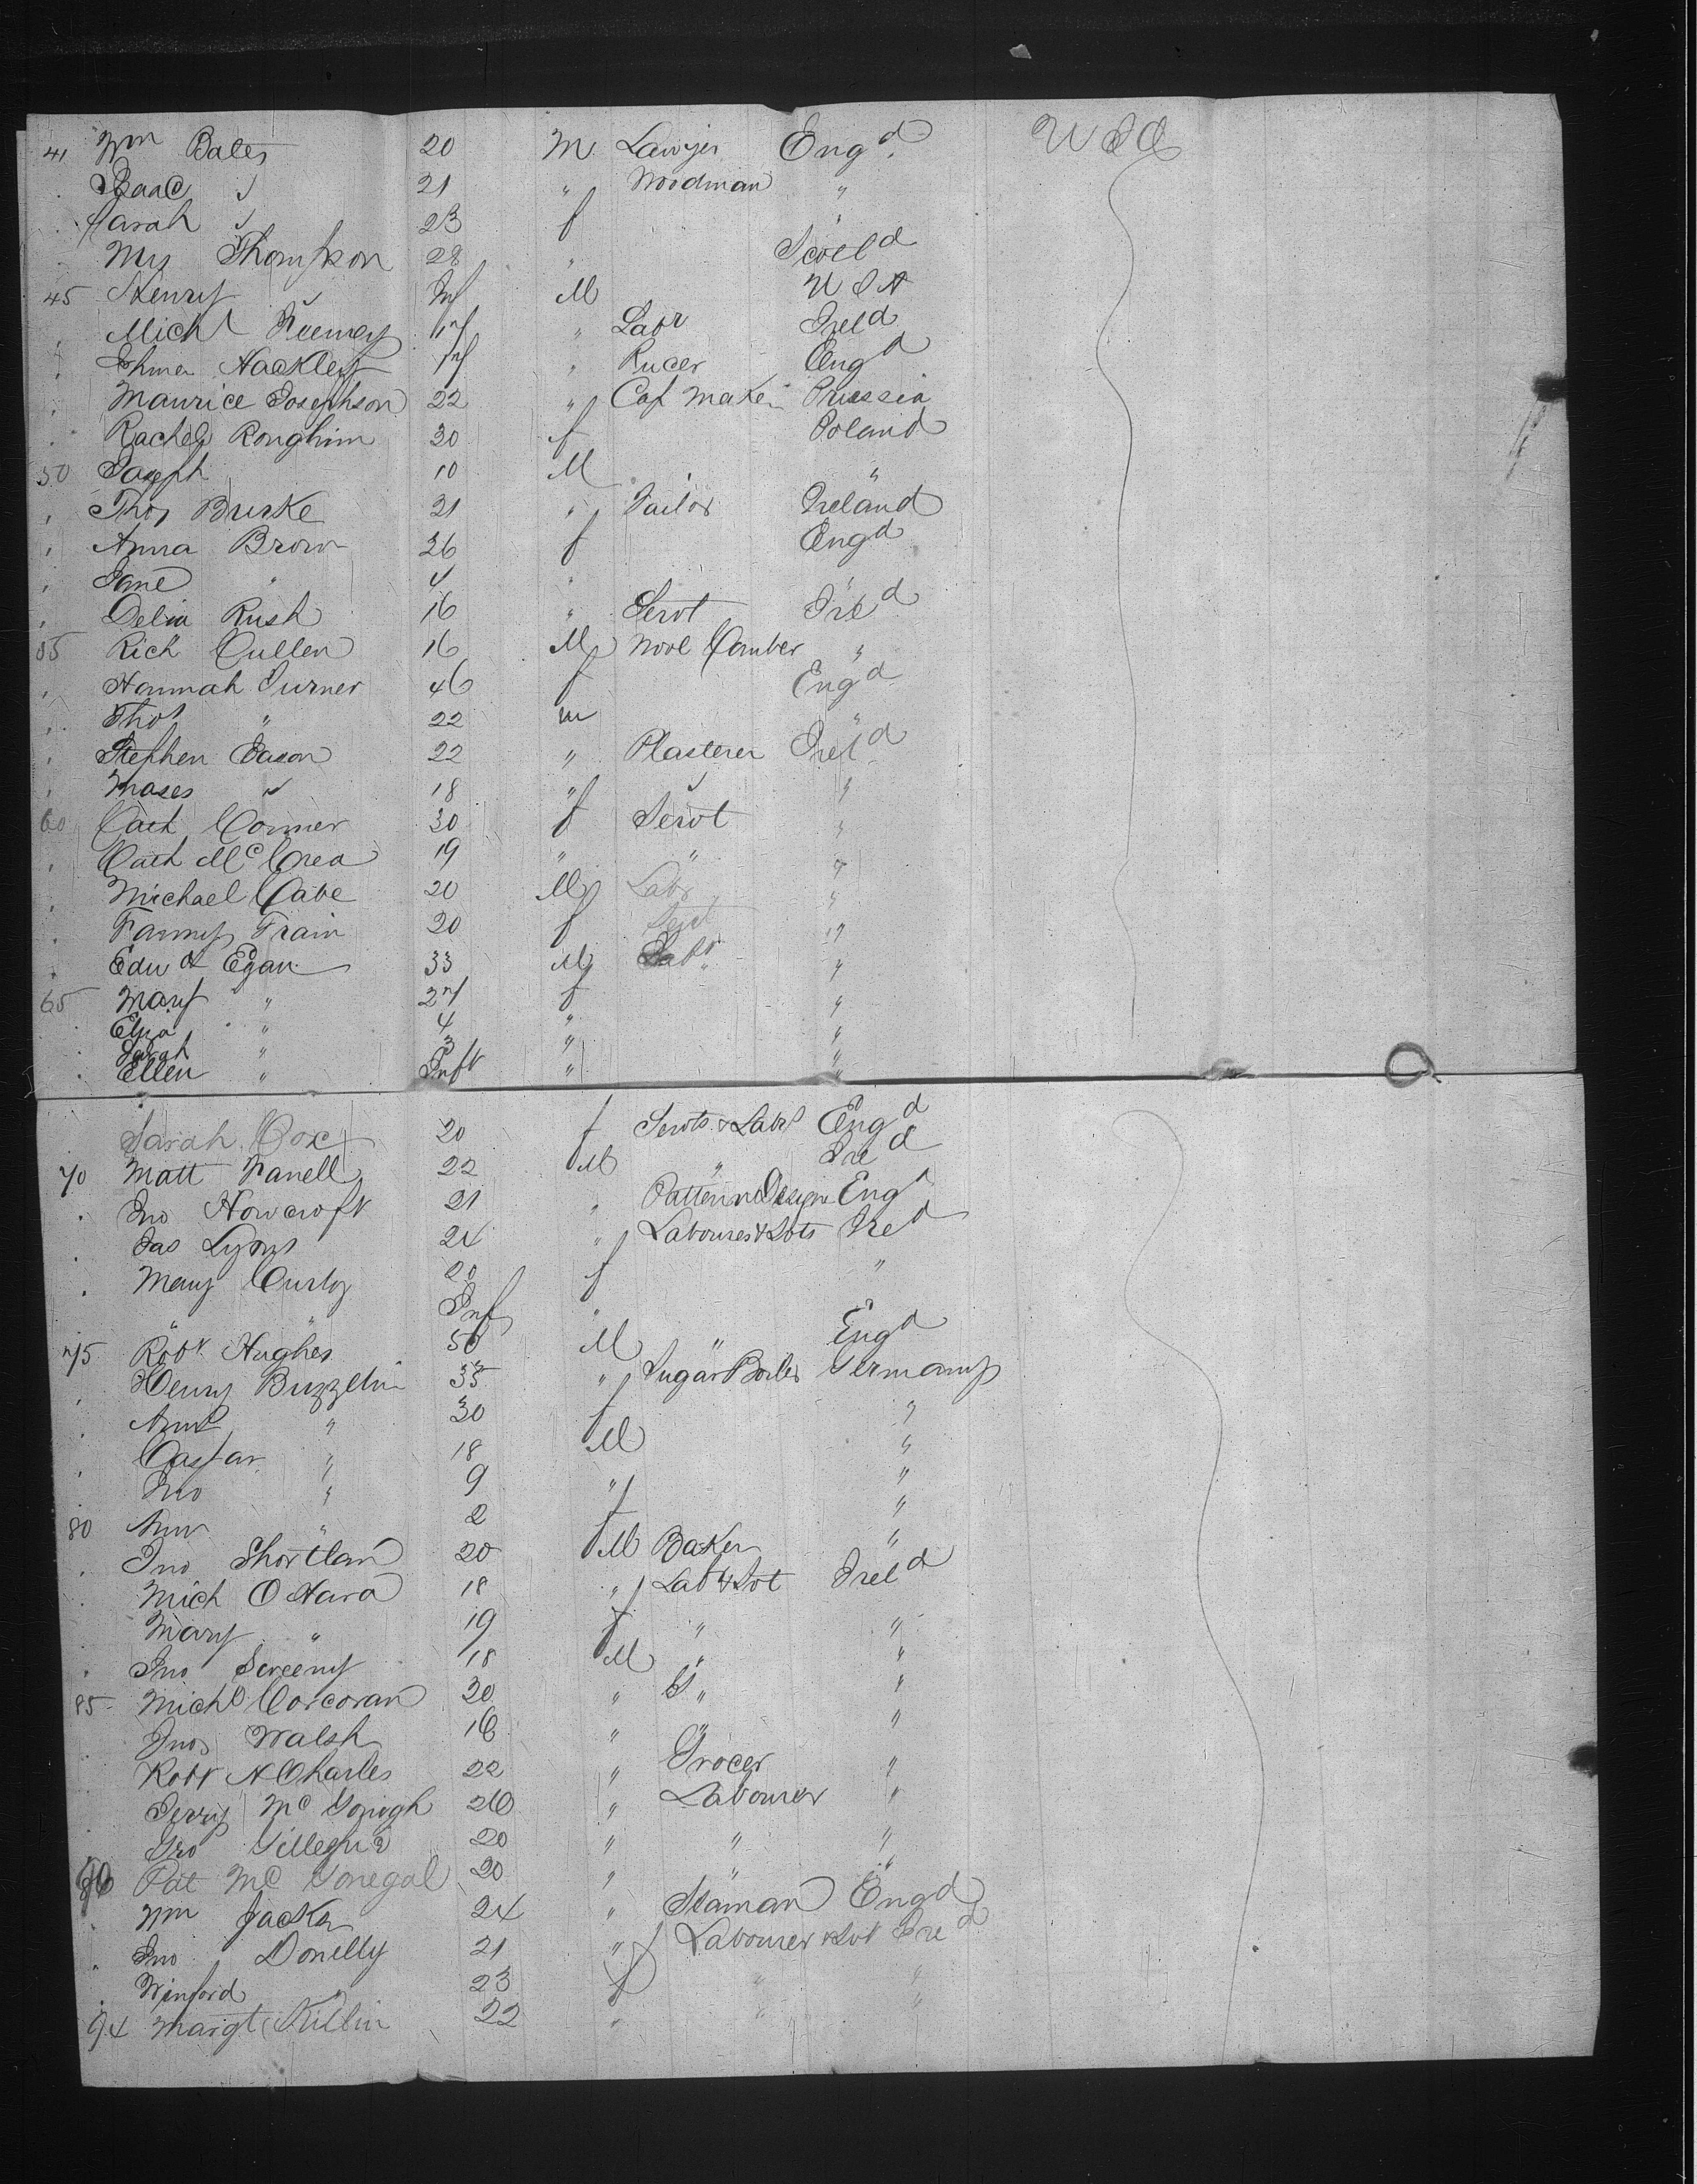 41 Wm Bates 20 M Lawyer Engd. U S A
Isaac " 21 " Woodman "
Sarah " 23 f
Mrs Thompson 28 " Scotld
45 Henry " Inf M U S A
Michl 17 " Labr Ireld
Hackley 17 " Engd
Maurice Josephson 22 " Cap Maker Prussia
Rachel Ronghim 30 f Poland
50 Joseph 10 M "
Thos Burke 21 " Tailor Ireland
Anna Brown 26 f Engd
Jane " 4 " "
Delia Rush 16 " Servt Ired
55 Rich Cullen 16 M Wool Comber "
Hannah Turner 46 f Engd
Thos " 22 m "
Stephen Eason 22 " Plasterer Ireld
Moses " 18 " " "
60 Cath Conner 30 f Servt "
Cath McCrea 19 " " "
Michael Cabe 20 M Labr "
Fanny Train 20 f Servt "
Edwd Egan 33 M Labr "
65 Mary " 27 f "
Eliza " 4 " "
Sarah " 3 " "
Ellen " Inft " "
Sarah Cox 20 f Servts & Labrs Engd
70 Matt Farrell 22 M " Ired
Jno Howcroft 21 " Pattern Design Engd
Jas Lyons 24 " Labourers & Svts Ired
Mary Curley 20 f "
" " Inf "
75 Robt Hughes 50 M " Engd
Henry Buzzelin 35 " Sugar Boiler Germany
" 30 f "
Caspar " 18 M "
Jno " 9 " "
80 Ann " 2 f "
Jno Shortlan 20 M Baker "
Mich O Hara 18 " Labr & Svt Ireld
Mary " 19 f " "
Jno Sweeny 18 M " "
85 Michl Corcoran 20 " " "
Jno Walsh 16 " "
Robt N Charles 22 " Grocer "
Jerry Mc Gonigh 26 " Labourer "
Geo 20 " " "
90 Pat Mc Gonegal 20 " " "
Wm Jacks 24 " Seaman Engd
Jno Donelly 21 " Labourer & Svt Ired
Winford " 23 f " "
94 Margt Killin 22 " " "